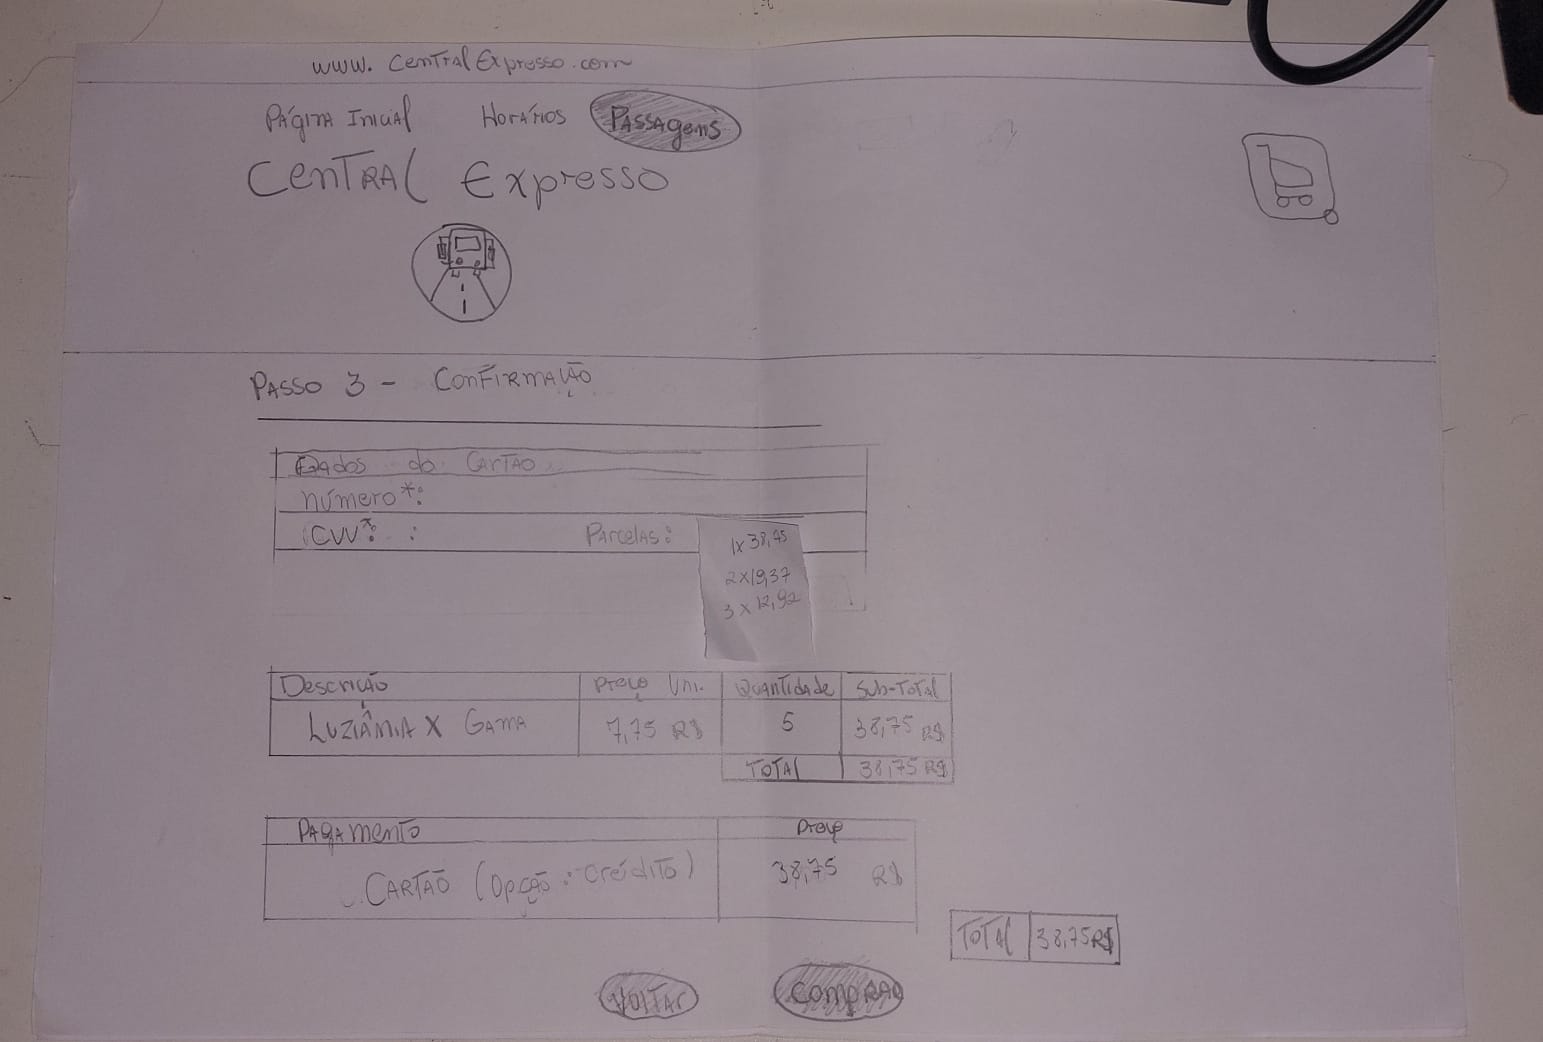 www.CentralExpresso.com
Página Inicial Horários Passagens
Central Expresso
Passo 3 - Confirmação
Dados do Cartão
número*:
CVV*: : Parcelas:
1x 38,75
2x19,37
3x 12,92
Descrição Preço Uni. Quantidade Sub-Total
Luziânia x Gama 7,75 R$ 5 38,75 R$
Total 38,75 R$
Pagamento Preço
Cartão (opção: crédito) 38,75 R$
Total 38,75R$
Voltar Comprar